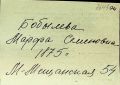 Бобылева
Марфа Семеновна
1875 г.
М-Мещанская 54